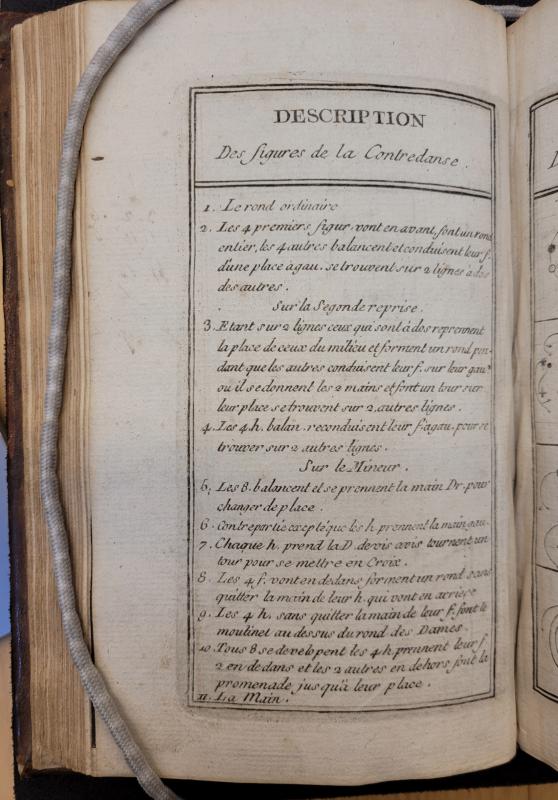 DESCRIPTION
Des figures de la Contredanse.
1. Le rond ordinaire
2. Les 4 premiers figur. vont en avant, font un rond
entier, les 4 autres balancent et conduisent leur f.
d'une place à gau. se trouvent sur 2 lignes à dos
des autres.
Sur la Segonde reprise.
3. Etant sur 2 lignes ceux qui sont à dos reprennent
la place de ceux du milieu et forment un rond pen-
dant que les autres conduisent leur f. sur leur gau.
ou il se donnent les 2 mains et font un tour sur
leur place se trouvent sur 2 autres lignes.
4. Les 4 h. balan. reconduisent leur f. agau. pour se
trouver sur 2 autres lignes.
Sur le Mineur.
5. Les 8. balancent et se prennent la main Dr. pour
changer de place.
6. Contrepartie excepté que les h. prennent la main gau.
7. Chaque h. prend la D. de vis avis tournent un
tour pour se mettre en Croix.
8. Les 4 f. vont en dedans forment un rond sans
quitter la main de leur h. qui vont en arriere
9. Les 4 h. sans quitter la main de leur f. font le
moulinet au dessus du rond des Dames.
10. Tous 8 se developent les 4 h prennent leur f.
2 en dedans et les 2 autres en dehors font la
promenade jusqu'à leur place.
11. La Main.